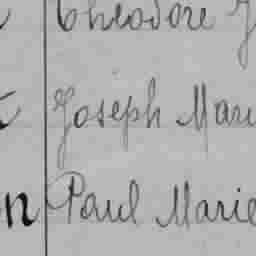 Theodore J
Joseph Marie
n Paul Marie